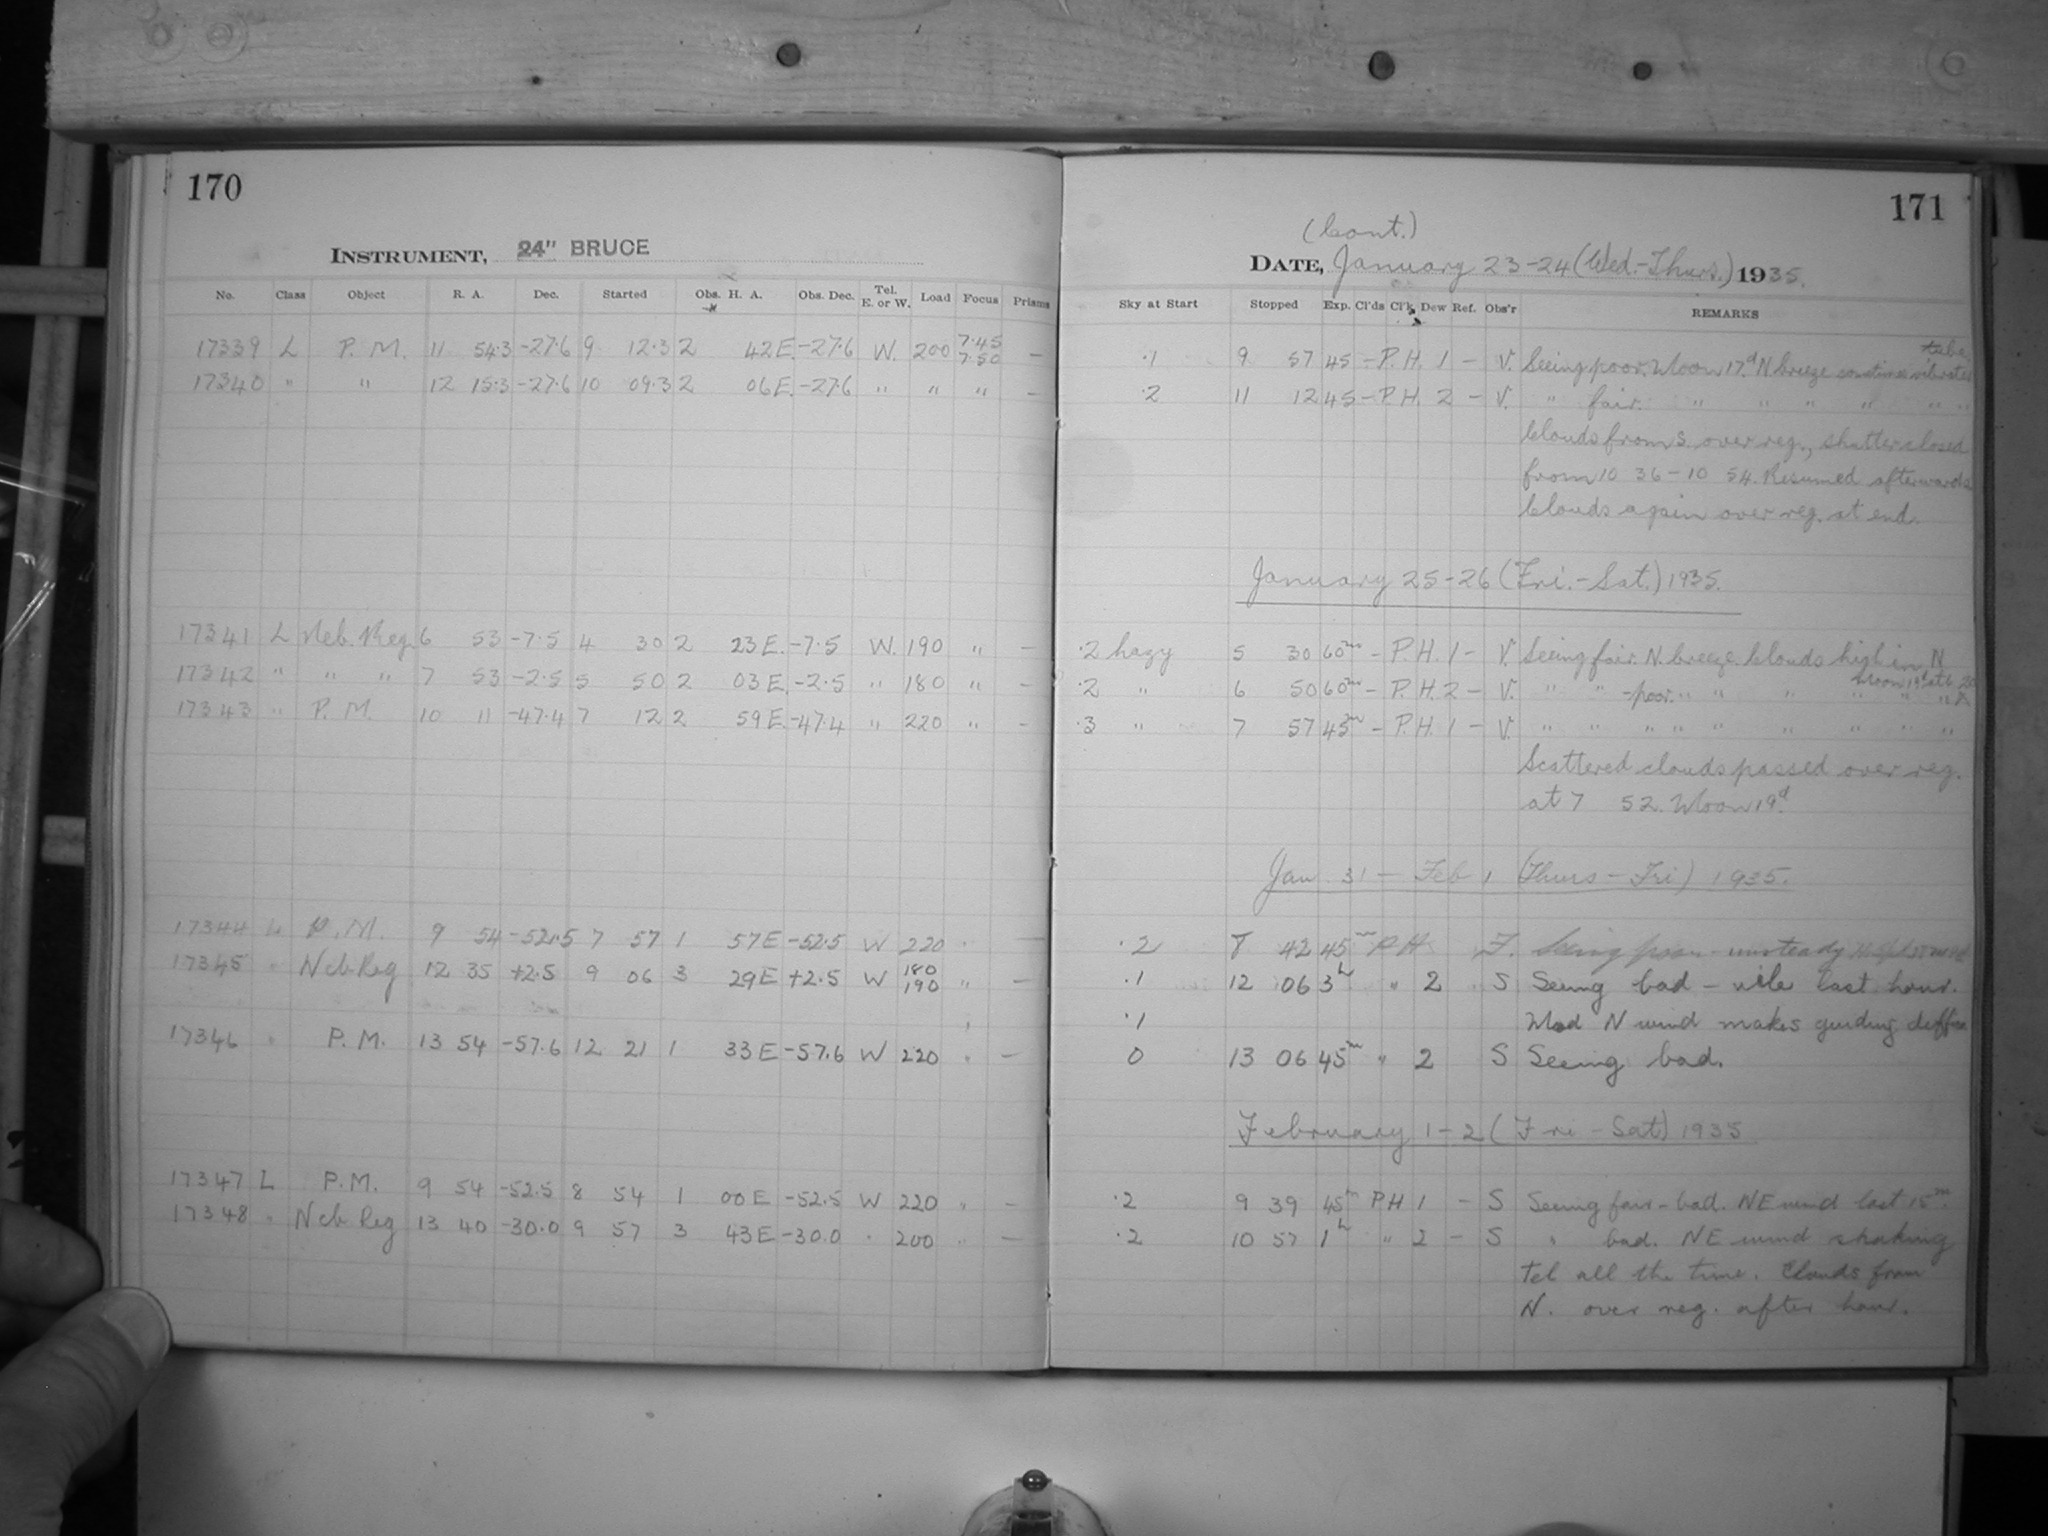 170
INSTRUMENT, 24" BRUCE
No. Class Object R. A. Dec. Started Obs. H. A. Obs. Dec. Tel. E. or W. Load Focus Prisms
17339 L P. M. 11 54.3 -27.6 9 12.3 2 42 E. -27.6 W. 200 7.45 7.50 -
17340 " " 12 15.3 -27.6 10 09.3 2 06 E. -27.6 " " " -
17341 L Neb. Reg. 6 53 -7.5 4 30 2 23 E. -7.5 W. 190 " -
17342 " " " 7 53 -2.5 5 50 2 03 E. -2.5 " 180 " -
17343 " P. M. 10 11 -47.4 7 12 2 59 E. -47.4 " 220 " -
17344 L P. M. 9 54 -52.5 7 57 1 57 E -52.5 W 220 " -
17345 " Neb Reg 12 35 +2.5 9 06 3 29 E +2.5 W 180 190 " -
17346 " P. M. 13 54 -57.6 12 21 1 33 E -57.6 W 220 " -
17347 L P. M. 9 54 -52.5 8 54 1 00 E -52.5 W 220 " -
17348 " Neb Reg 13 40 -30.0 9 57 3 43 E -30.0 " 200 " -
171
(Cont.)
DATE, January 23-24 (Wed.-Thurs.) 1935.
Sky at Start Stopped Exp. Cl'ds Cl'k Dew Ref. Obs'r REMARKS
.1 9 57 45 - P. H. 1 - V. Seeing poor. Moon 17d. N breeze sometimes vibrates tube
.2 11 12 45 - P. H. 2 - V. " fair. " " " " " "
Clouds from S. over reg., shutter closed
from 10 36 - 10 54. Resumed afterwards
Clouds again over reg. at end.
January 25-26 (Fri.-Sat.) 1935.
.2 hazy 5 30 60m - P. H. 1 - V. Seeing fair. N. breeze. Clouds high in N
.2 " 6 50 60m - P. H. 2 - V. " " - poor. " " " " "
.3 " 7 57 45m - P. H. 1 - V. " " " " " " " " "
Scattered clouds passed over reg.
at 7 52. Moon 19d
Jan 31 - Feb 1 (Thurs - Fri) 1935.
.2 8 42 45m P H F. Seeing poor - unsteady
.1 12 06 3h " 2 " S Seeing bad - vile last hour.
.1 Mod N wind makes guiding
0 13 06 45m " 2 S Seeing bad.
February 1-2 (Fri - Sat) 1935
.2 9 39 45m P H 1 - S Seeing fair - bad. NE wind last 15m.
.2 10 57 1h " 2 - S " bad. NE wind shaking
tel all the time. Clouds from
N. over reg. after hour.